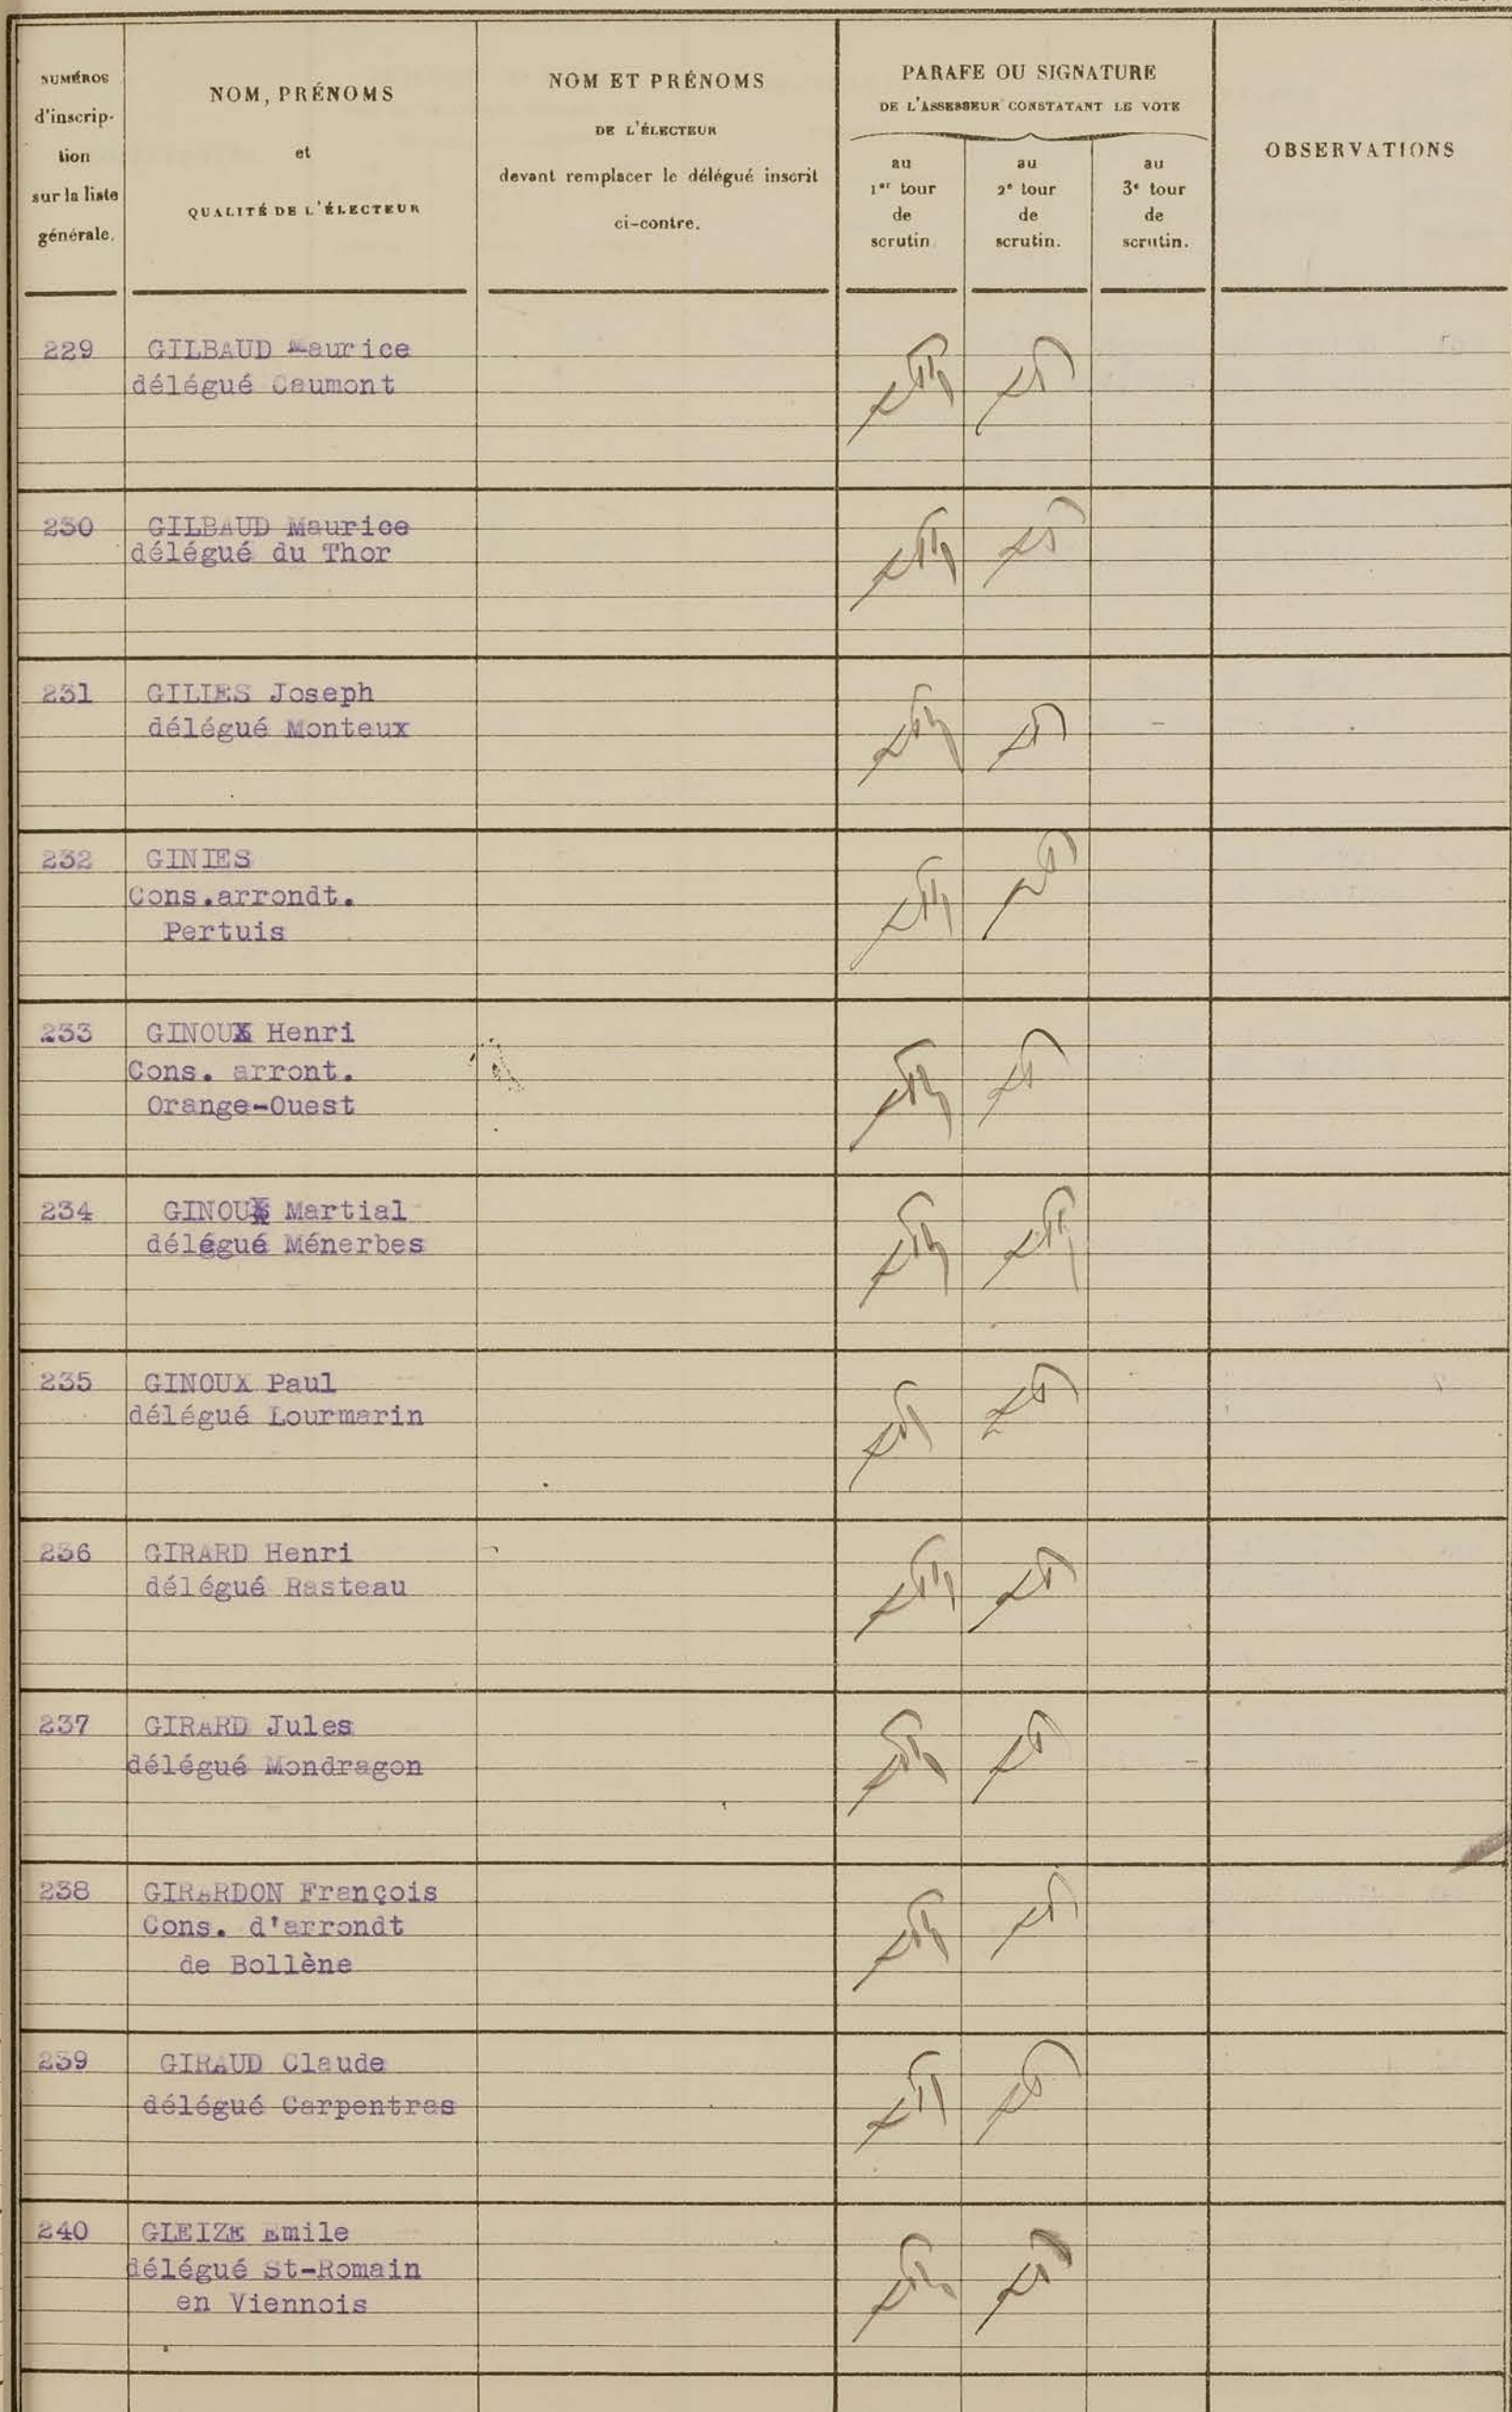 NUMÉROS
d'inscrip-
tion
sur la liste
générale.
NOM, PRÉNOMS
et
QUALITÉ DE L'ÉLECTEUR
NOM ET PRÉNOMS
DE L'ÉLECTEUR
devant remplacer le délégué inscrit
ci-contre.
PARAFE OU SIGNATURE
DE L'ASSESSEUR CONSTATANT LE VOTE
au
1er tour
de
scrutin
au
2e tour
de
scrutin.
au
3e tour
de
scrutin.
OBSERVATIONS
229 GILBAUD Maurice
délégué Caumont
230 GILBAUD Maurice
délégué du Thor
231 GILIES Joseph
délégué Monteux
232 GINIES
Cons.arrondt.
Pertuis
233 GINOUX Henri
Cons. arront.
Orange-Ouest
234 GINOUX Martial
délégué Ménerbes
235 GINOUX Paul
délégué Lourmarin
236 GIRARD Henri
délégué Rasteau
237 GIRARD Jules
délégué Mondragon
238 GIRARDON François
Cons. d'arrondt
de Bollène
239 GIRAUD Claude
délégué Carpentras
240 GLEIZE Emile
délégué St-Romain
en Viennois